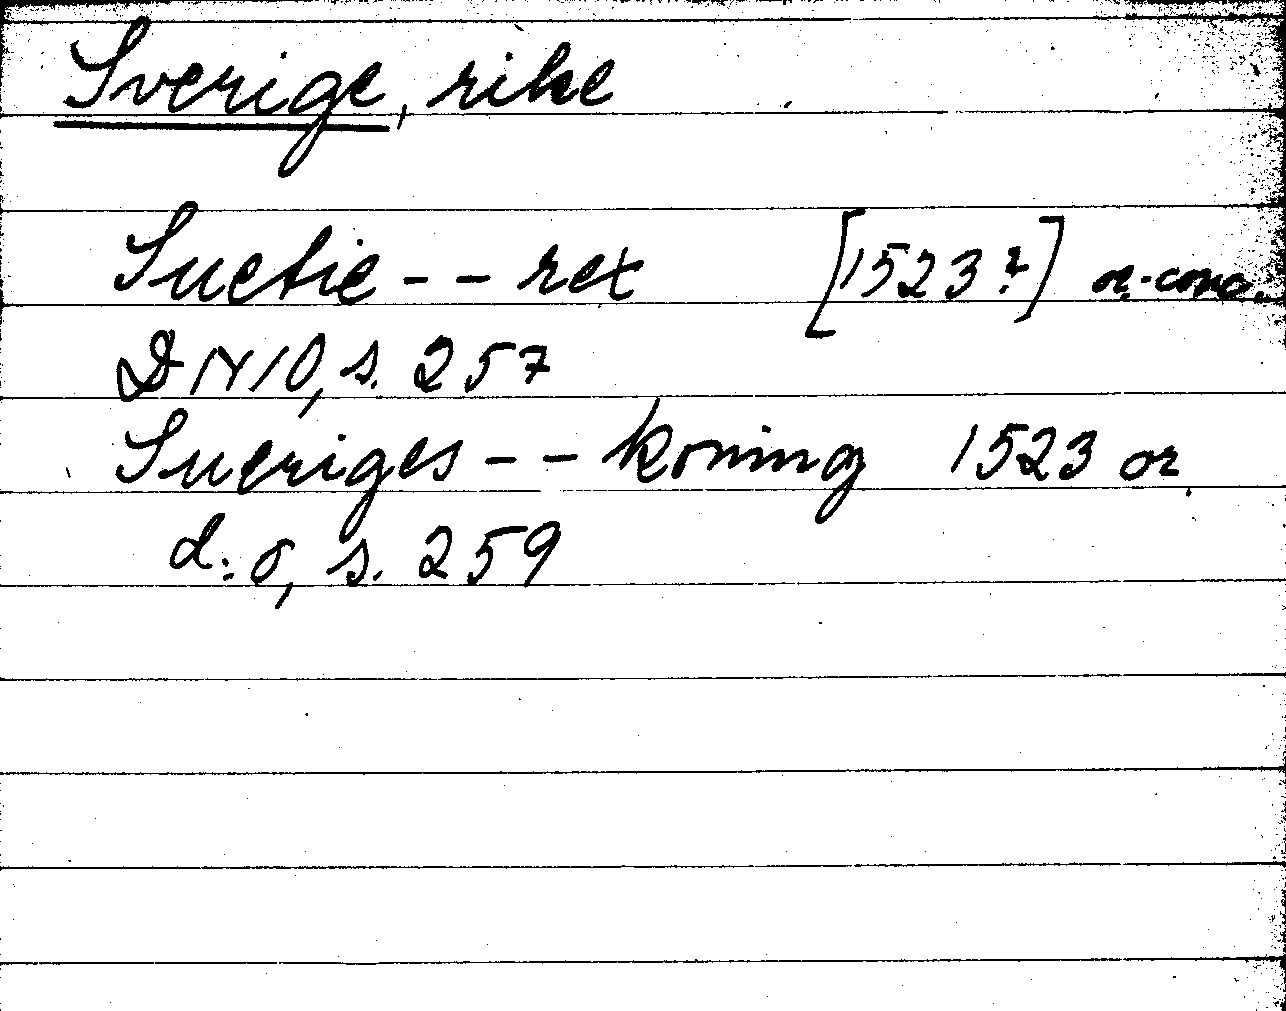 Sverige, rike
Suetie - - rex [1523?] or.-conc.
DN 10, s. 257
Sueriges - - koning 1523 or
d:o, s. 259